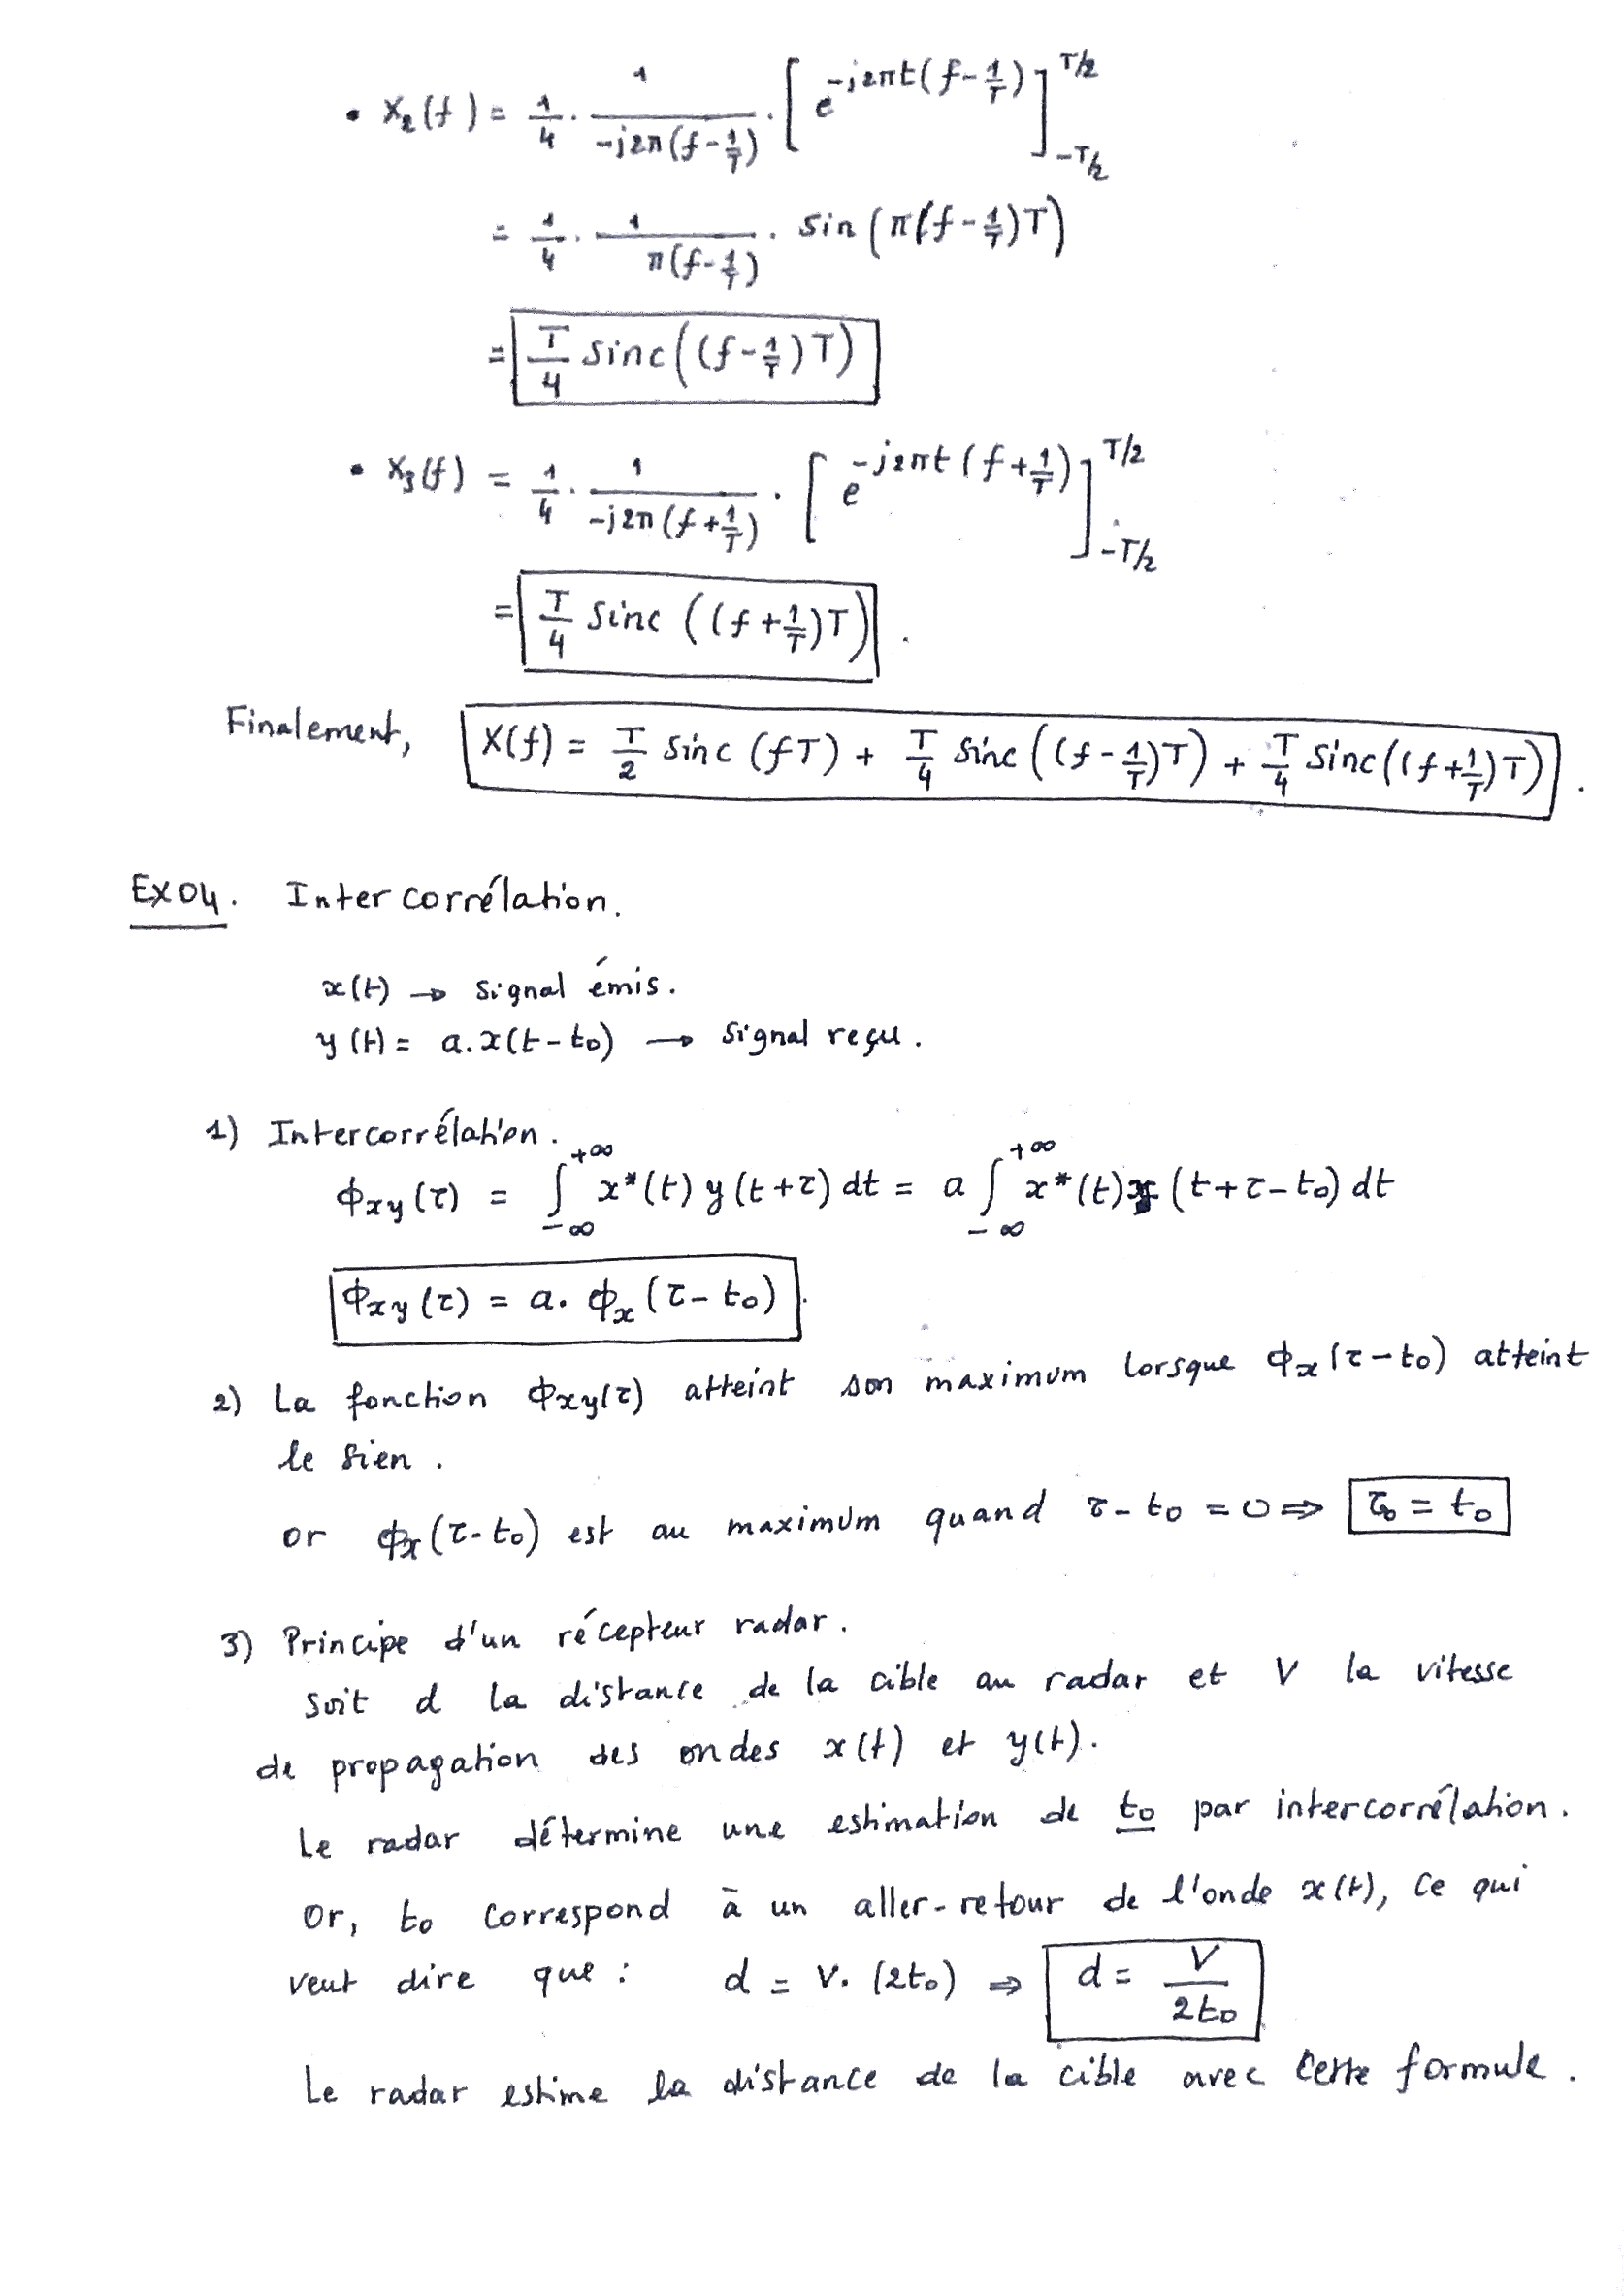 • X₂(f) = 1/4 . 1/(-j2π(f-1/T)) . [e^(-j2πt(f-1/T))]_{-T/2}^{T/2}
= 1/4 . 1/(π(f-1/T)) . sin(π(f-1/T)T)
= T/4 sinc((f-1/T)T)
• X₃(f) = 1/4 . 1/(-j2π(f+1/T)) . [e^(-j2πt(f+1/T))]_{-T/2}^{T/2}
= T/4 sinc((f+1/T)T) .
Finalement, X(f) = T/2 sinc(fT) + T/4 sinc((f-1/T)T) + T/4 sinc((f+1/T)T) .
EXO4. Inter corrélation.
x(t) → signal émis.
y(t) = a.x(t-t₀) → signal reçu.
1) Intercorrélation.
ϕxy(τ) = ∫_{-∞}^{+∞} x*(t) y(t+τ) dt = a ∫_{-∞}^{+∞} x*(t) x(t+τ-t₀) dt
ϕxy(τ) = a. ϕx(τ-t₀).
2) La fonction ϕxy(τ) atteint son maximum lorsque ϕx(τ-t₀) atteint
le sien .
or ϕx(τ-t₀) est au maximum quand τ-t₀ = 0 ⇒ τ₀ = t₀
3) Principe d'un récepteur radar.
Soit d la distance de la cible au radar et V la vitesse
de propagation des ondes x(t) et y(t).
Le radar détermine une estimation de t₀ par intercorrélation.
Or, t₀ correspond à un aller-retour de l'onde x(t), ce qui
veut dire que : d = V. (2t₀) ⇒ d = V/2t₀
Le radar estime la distance de la cible avec cette formule .